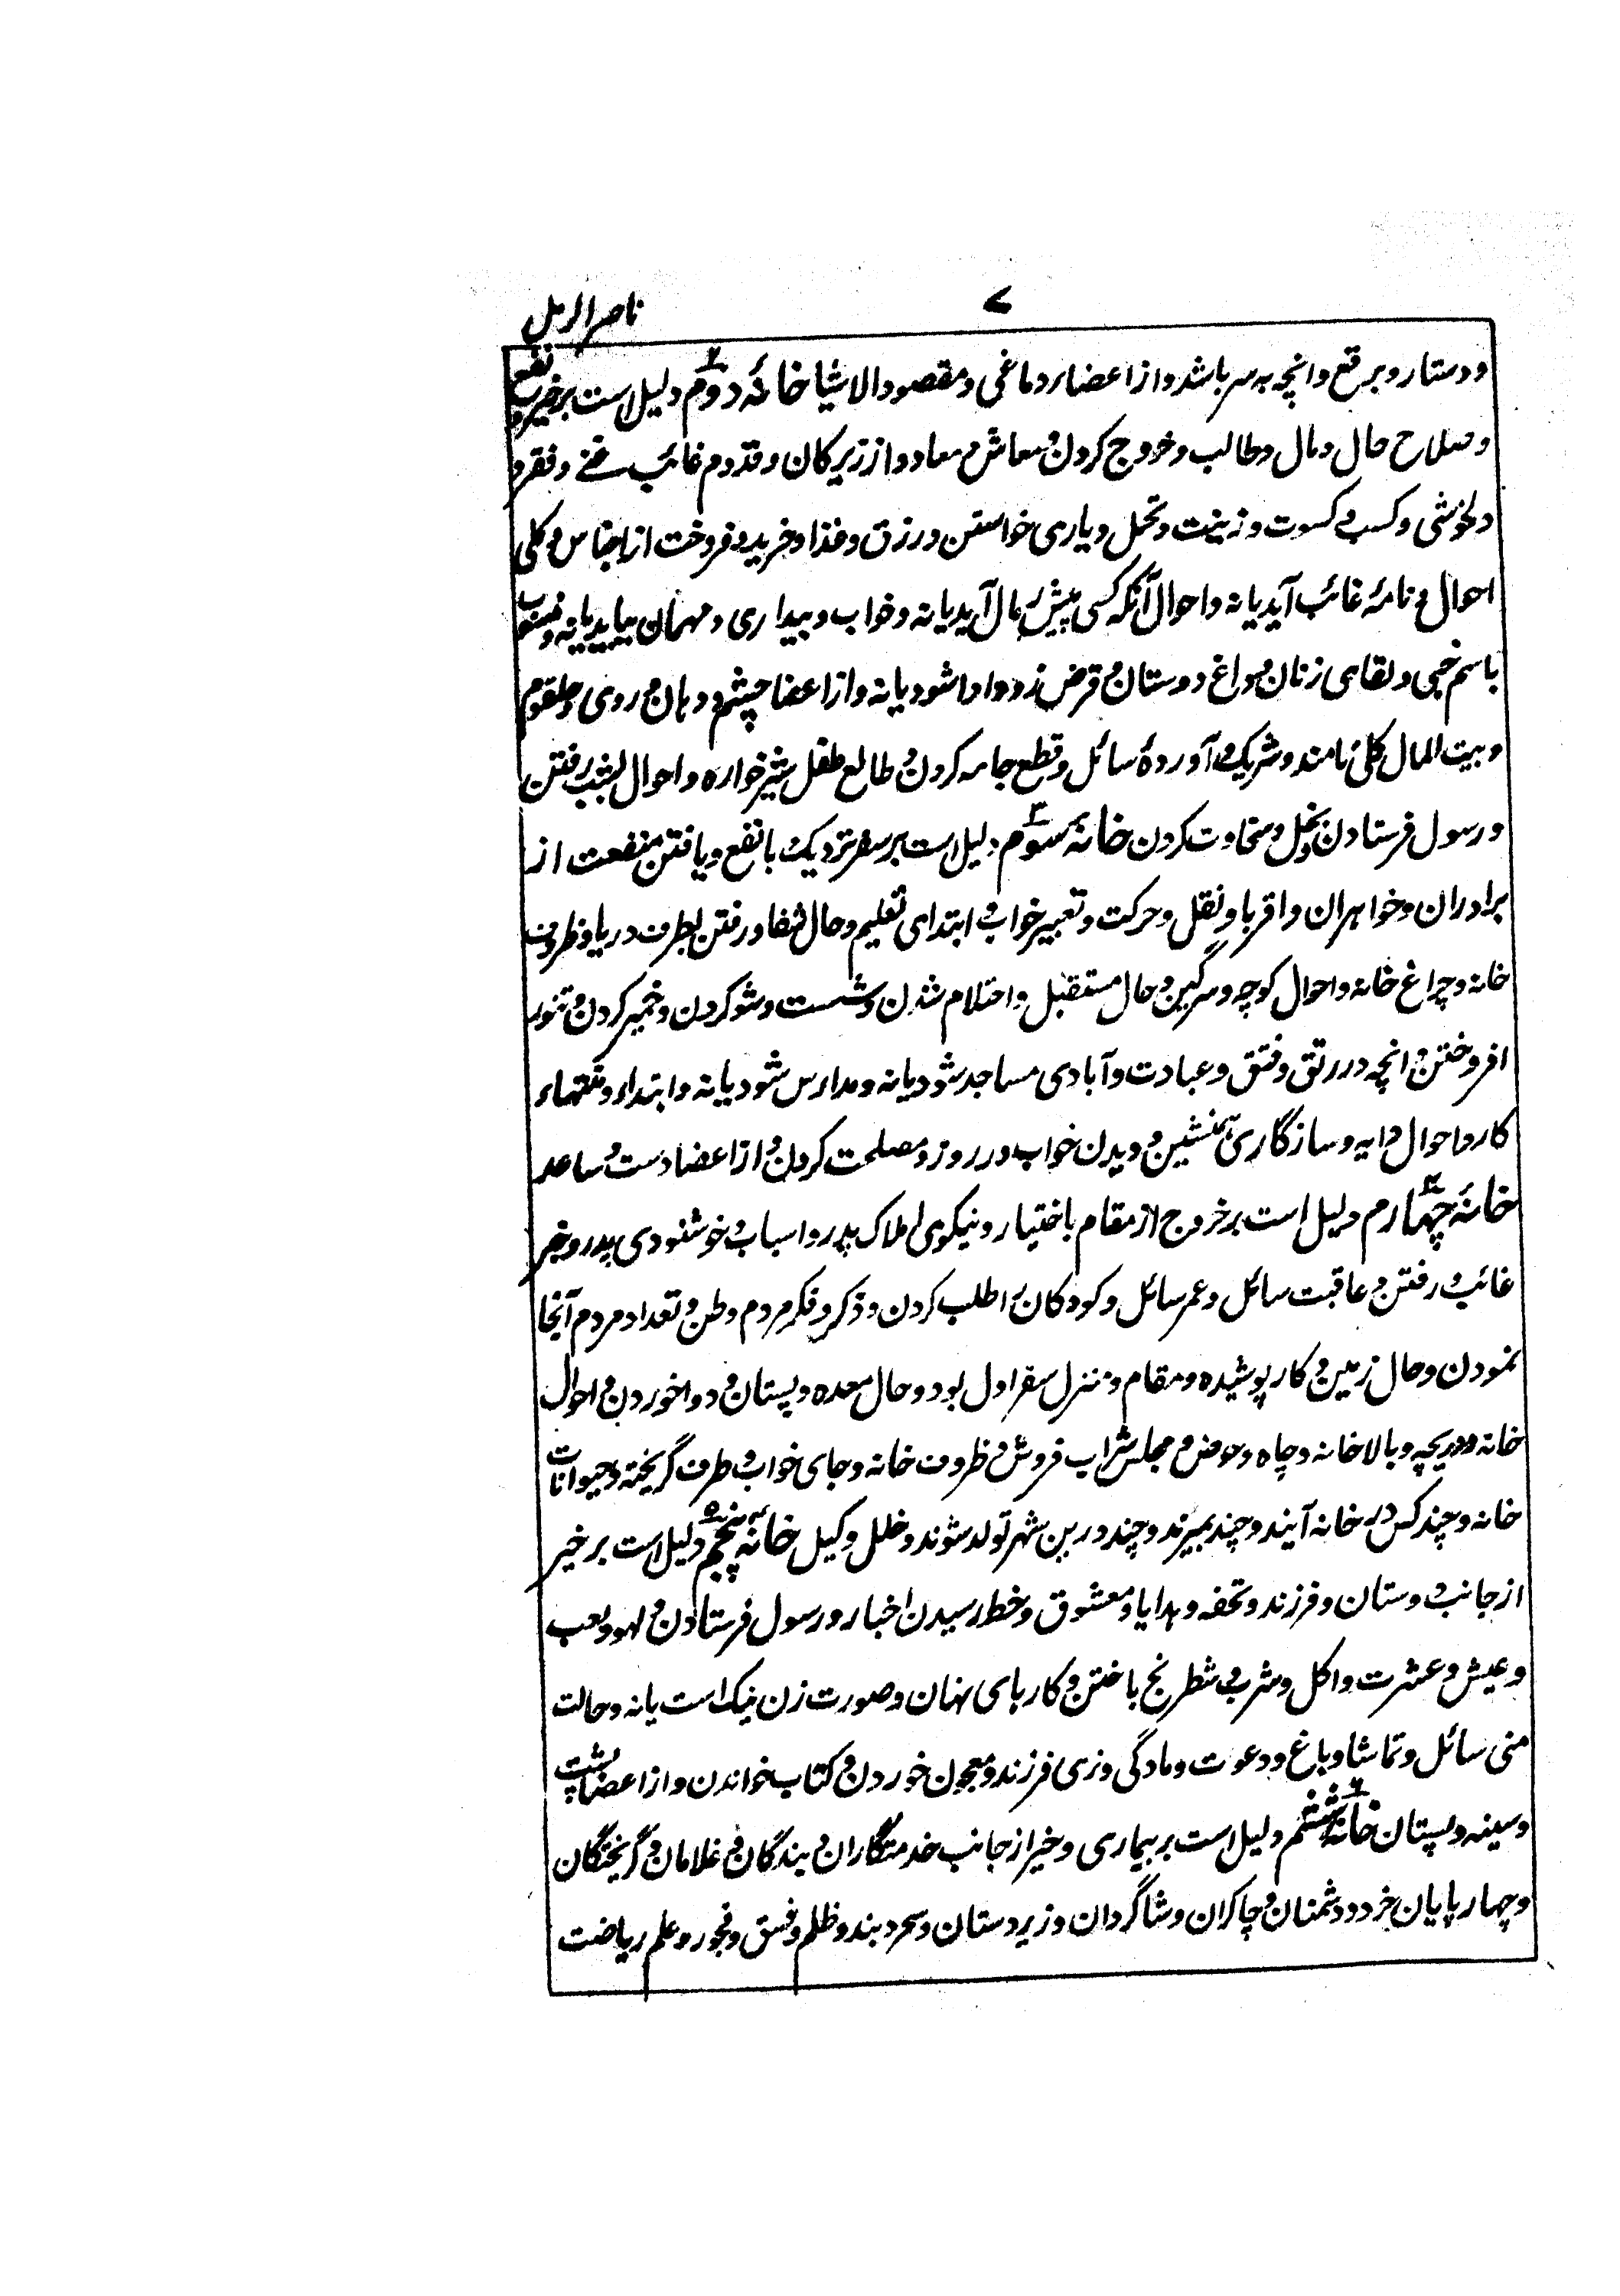 ناصر الرمل
۷
و دستار و برقع و انچه به سر باشد و از اعضار دماغی و مقصود الاشیا خانهٔ دوّم ۲ دلیل است بر خیر و نفع
و صلاح حال و مال و طالب و خروج کردن و معاش و معاد و از زیرکان و قدوم غائب غنے و فقر و
دلخوشی و کسب و کسوت و زینت و تحمل و یاری خواستن و رزق و غذا و خرید و فروخت از اجناس و کلی
احوال و نامهٔ غائب آید یا نه و احوال آنکه کسی پیش رمال آید یا نه و خواب و بیداری و مهمان بیاید یا نه و منسوب
باسم خمی و لقای زنان و سراغ دوستان و قرض زود ادا شود یا نه و از اعضا چشم و دهان و روی و حلقوم
و بیت المال کلی نامند و شریک و آوردهٔ سائل و قطع جامه کردن و طالع طفل شیر خواره و احوال بشب رفتن
و رسول فرستادن و بخل و سخاوت کردن خانهٔ سوّم ۳ دلیل است بر سفر نزدیک با نفع و یافتن منفعت از
برادران و خواهران و اقربا و نقل و حرکت و تعبیر خواب و ابتدای تعلیم و حال شفا و رفتن بطرف دریا و ظروف
خانه و چراغ خانه و احوال کوچه و سرگین و حال مستقبل و احتلام شدن و شست و شو کردن و خمیر کردن و تنور
افروختن و انچه در رتق و فتق و عبادت و آبادی مساجد شود یا نه و مدارس شود یا نه و ابتداء و منتهاء
کار و احوال دایه و سازگاری همنشین و دیدن خواب در روز و مصلحت کردن و از اعضا دست و ساعد
خانهٔ چهارم ۴ دلیل است بر خروج از مقام باختیار و نیکوی املاک پدر و اسباب و خوشنودی پدر و خیر
غائب و رفتن و عاقبت سائل و عمر سائل و کودکان را طلب کردن و ذکر و فکر مردم وطن و تعداد مردم آنجا
نمودن و حال زمین و کار پوشیده و مقام و منزل سفر اول بود و حال معده و پستان و دوا خوردن و احوال
خانه و دریچه و بالا خانه و چاه و حوض و مجلس شراب فروش و ظروف خانه و جای خواب و طرف گریخته و حیوانات
خانه و چند کس در خانه آیند و چند بمیرند و چند درین شهر تولد شوند و خلل وکیل خانهٔ پنجم ۵ دلیل است بر خیر
از جانب دوستان و فرزند و تحفه و هدایا و معشوق و خط رسیدن اخبار و رسول فرستادن و لهو و لعب
و عیش و عشرت و اکل و شرب و شطرنج باختن و کارهای نهان و صورت زن نیک است یا نه و حالت
منی سائل و تماشا و باغ و دعوت و مادگی و نری فرزند و معجون خوردن و کتاب خواندن و از اعضا پشت
و سینه و پستان خانهٔ ششم ۶ دلیل است بر بیماری و خیر از جانب خدمتگاران و بندگان و غلامان و گریختگان
و چهار پایان خرد و دشمنان و چاکران و شاگردان و زیردستان و سحر و بند و ظلم و فسق و فجور و علم ریاضت